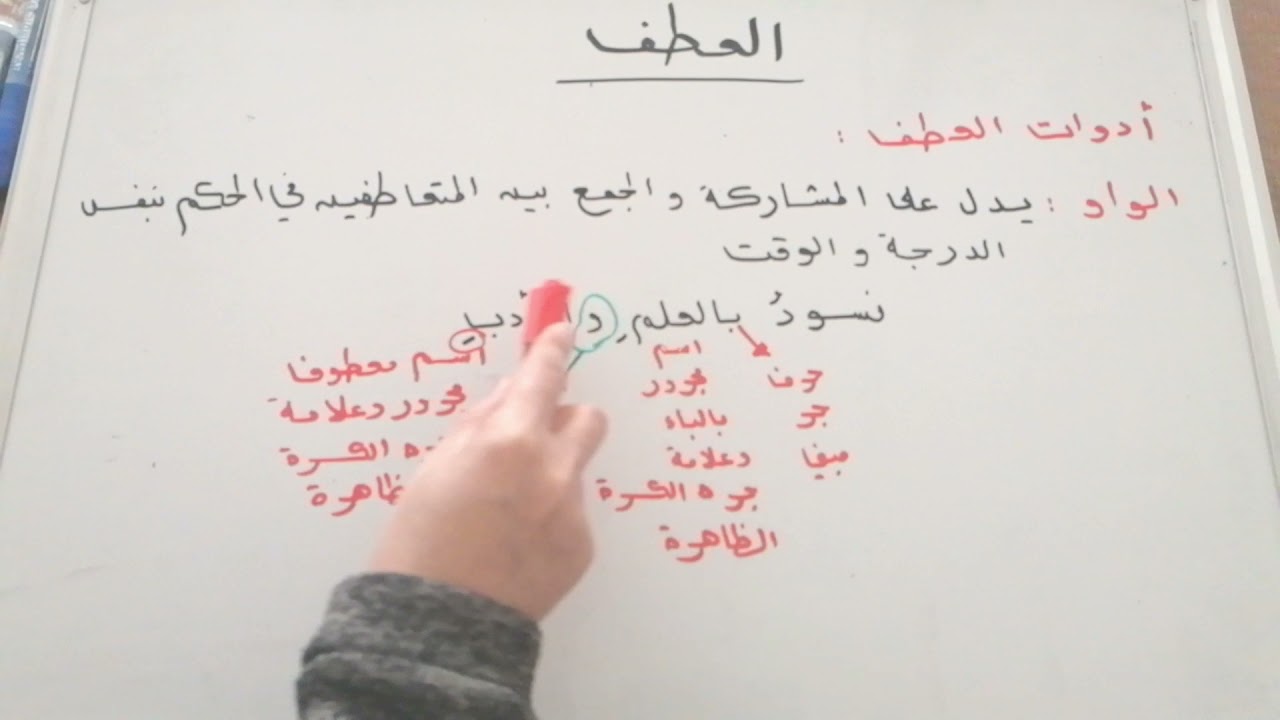 العطف
أدوات العطف :
الواو : يدل على المشاركة و الجمع بين المتعاطفين في الحكم بنفس
الدرجة و الوقت
نسودُ بالعلمِ و
حرف اسم اسم معطوف
جر مجرور مجرور وعلامة
مبني بالباء الكسرة
وعلامة
جره الكسرة
الظاهرة